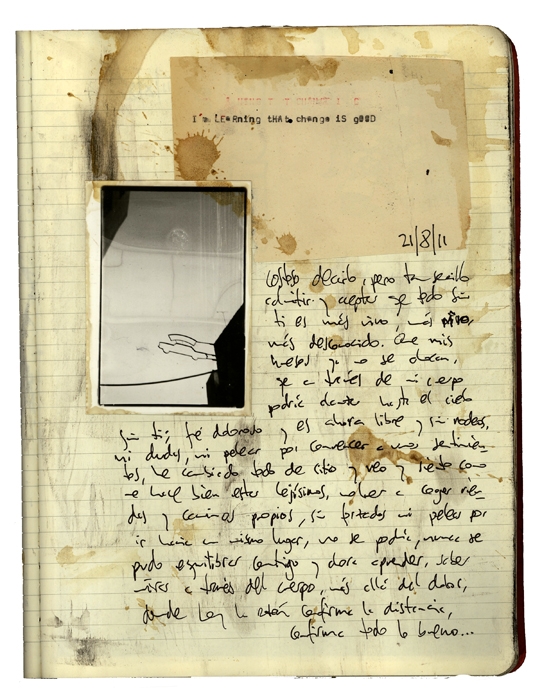 I'm LEaRning tHAt change iS gOOD
21/8/11
decirlo, pero tan sencillo
admitir y aceptar que todo sin
ti es más vivo, más
más desconocido. Que mis
huesos ya no se
que a través de mi cuerpo
podría hasta el cielo
sin ti, fé y es ahora libre y sin rodeos,
ni dudas, ni pelear por convencer a unos sentimien-
tos, he cambiado todo de sitio y veo y siento como
me hace bien estar lejísimos, volver a coger rien-
das y caminos propios, sin ni pelear por
ir hacia un mismo lugar, no se podía, nunca se
pudo equilibrar contigo y ahora aprender, saber
mirar a través del cuerpo, más allá del dolor,
donde hoy la confirma la distancia,
confirma todo lo bueno...